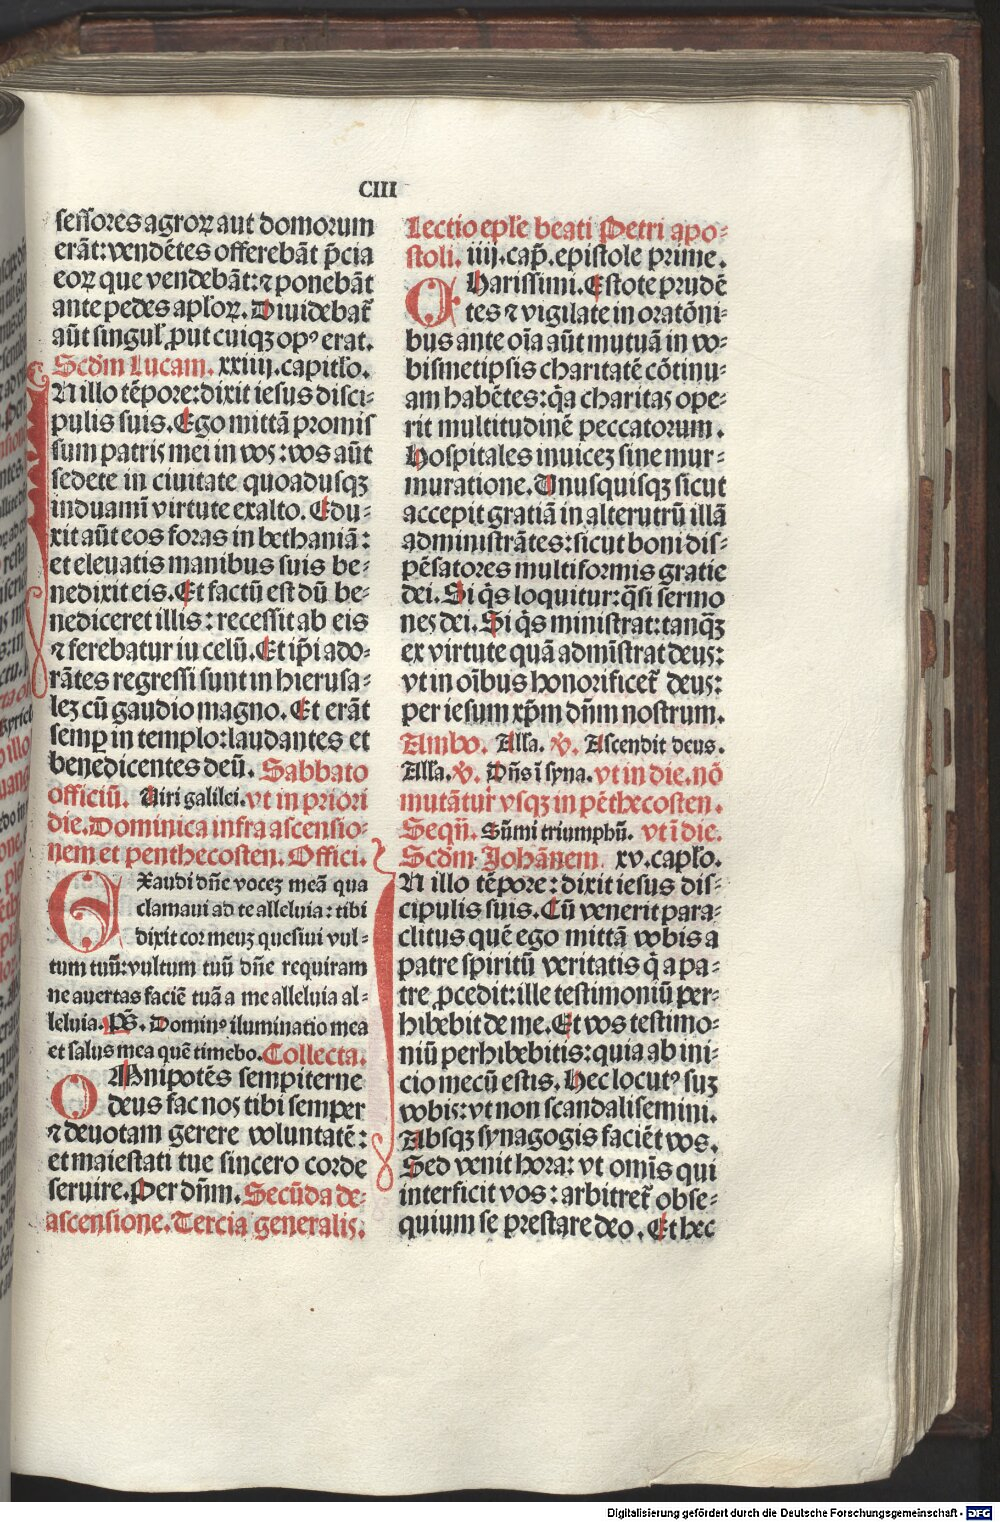 CIII
sessores agroꝝ aut domorum
erāt: vendētes offerebāt p̄cia
eoꝝ que vendebāt: ⁊ ponebāt
ante pedes aploꝝ. Diuidebat᷑
aūt singul᷑ ꝓut cuiqꝫ opꝰ erat.
Scd̄m Lucam. xxiiij. capitło.
IN illo tēpore: dixit iesus disci-
pulis suis. Ego mittā promis
sum patris mei in vos: vos aūt
sedete in ciuitate quoadusqꝫ
induamī virtute exalto. Edu-
xit aūt eos foras in bethaniā:
et eleuatis manibus suis be-
nedixit eis. Et factū est dū be-
nediceret illis: recessit ab eis
⁊ ferebatur iu celū. Et ip̄i ado-
rātes regressi sunt in hierusa-
leꝫ cū gaudio magno. Et erāt
semꝑ in templo: laudantes et
benedicentes deū. Sabbato
officiū. Uiri galilei. vt in priori
die. Dominica infra ascensio-
nem et penthecosten. Offici.
EXaudi dn̄e voceꝫ meā qua
clamaui ad te alleluia: tibi
dixit cor meuꝫ quesiui vul-
tum tuū: vultum tuū dn̄e requiram
ne auertas faciē tuā a me alleluia al-
leluia. Ps̄. Dominꝰ iluminatio mea
et salus mea quē timebo. Collecta.
OMnipotēs sempiterne
deus fac nos tibi semper
⁊ deuotam gerere voluntatē:
et maiestati tue sincero corde
seruire. Per dn̄m. Secūda de
ascensione. Tercia generalis.
Lectio epl̄e beati Petri apo-
stoli. iiij. cap̄. epistole prime.
CHarissimi. Estote prudē
tes ⁊ vigilate in oratōni-
bus ante oīa aūt mutuā in vo-
bismetipsis charitatē cōtinu-
am habētes: q̄a charitas ope-
rit multitudinē peccatorum.
Hospitales inuiceꝫ sine mur-
muratione. Unusquisqꝫ sicut
accepit gratiā in alterutrū illā
administrātes: sicut boni dis-
pēsatores multiformis gratie
dei. Si q̄s loquitur: q̄si sermo
nes dei. Si q̄s ministrat: tanqꝫ̄
ex virtute quā admīstrat deus:
vt in oībus honorificet᷑ deus:
per iesum xp̄m dn̄m nostrum.
Ambo. Alla. ℣. Ascendit deus.
Alla. ℣. Dn̄s ī syna. vt in die. nō
mutātur vsqꝫ in pēthecosten.
Seqn̄. Sūmi triumphū. vt ī die.
Scd̄m Johānem. xv. capło.
IN illo tēpore: dixit iesus dis-
cipulis suis. Cū venerit para-
clitus quē ego mittā vobis a
patre spiritū veritatis q̄ a pa-
tre ꝓcedit: ille testimoniū per-
hibebit de me. Et vos testimo-
niū perhibebitis: quia ab ini-
cio mecū estis. Hec locutꝰ suꝫ
vobis: vt non scandalisemini.
Absqꝫ synagogis faciēt vos.
Sed venit hora: vt omīs qui
interficit vos: arbitret᷑ obse-
quium se prestare deo. Et hec
Digitalisierung gefördert durch die Deutsche Forschungsgemeinschaft - DFG